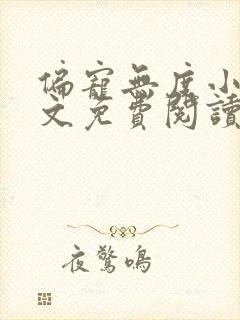 偏寵無度小
文免費閱讀
夜驚鳴